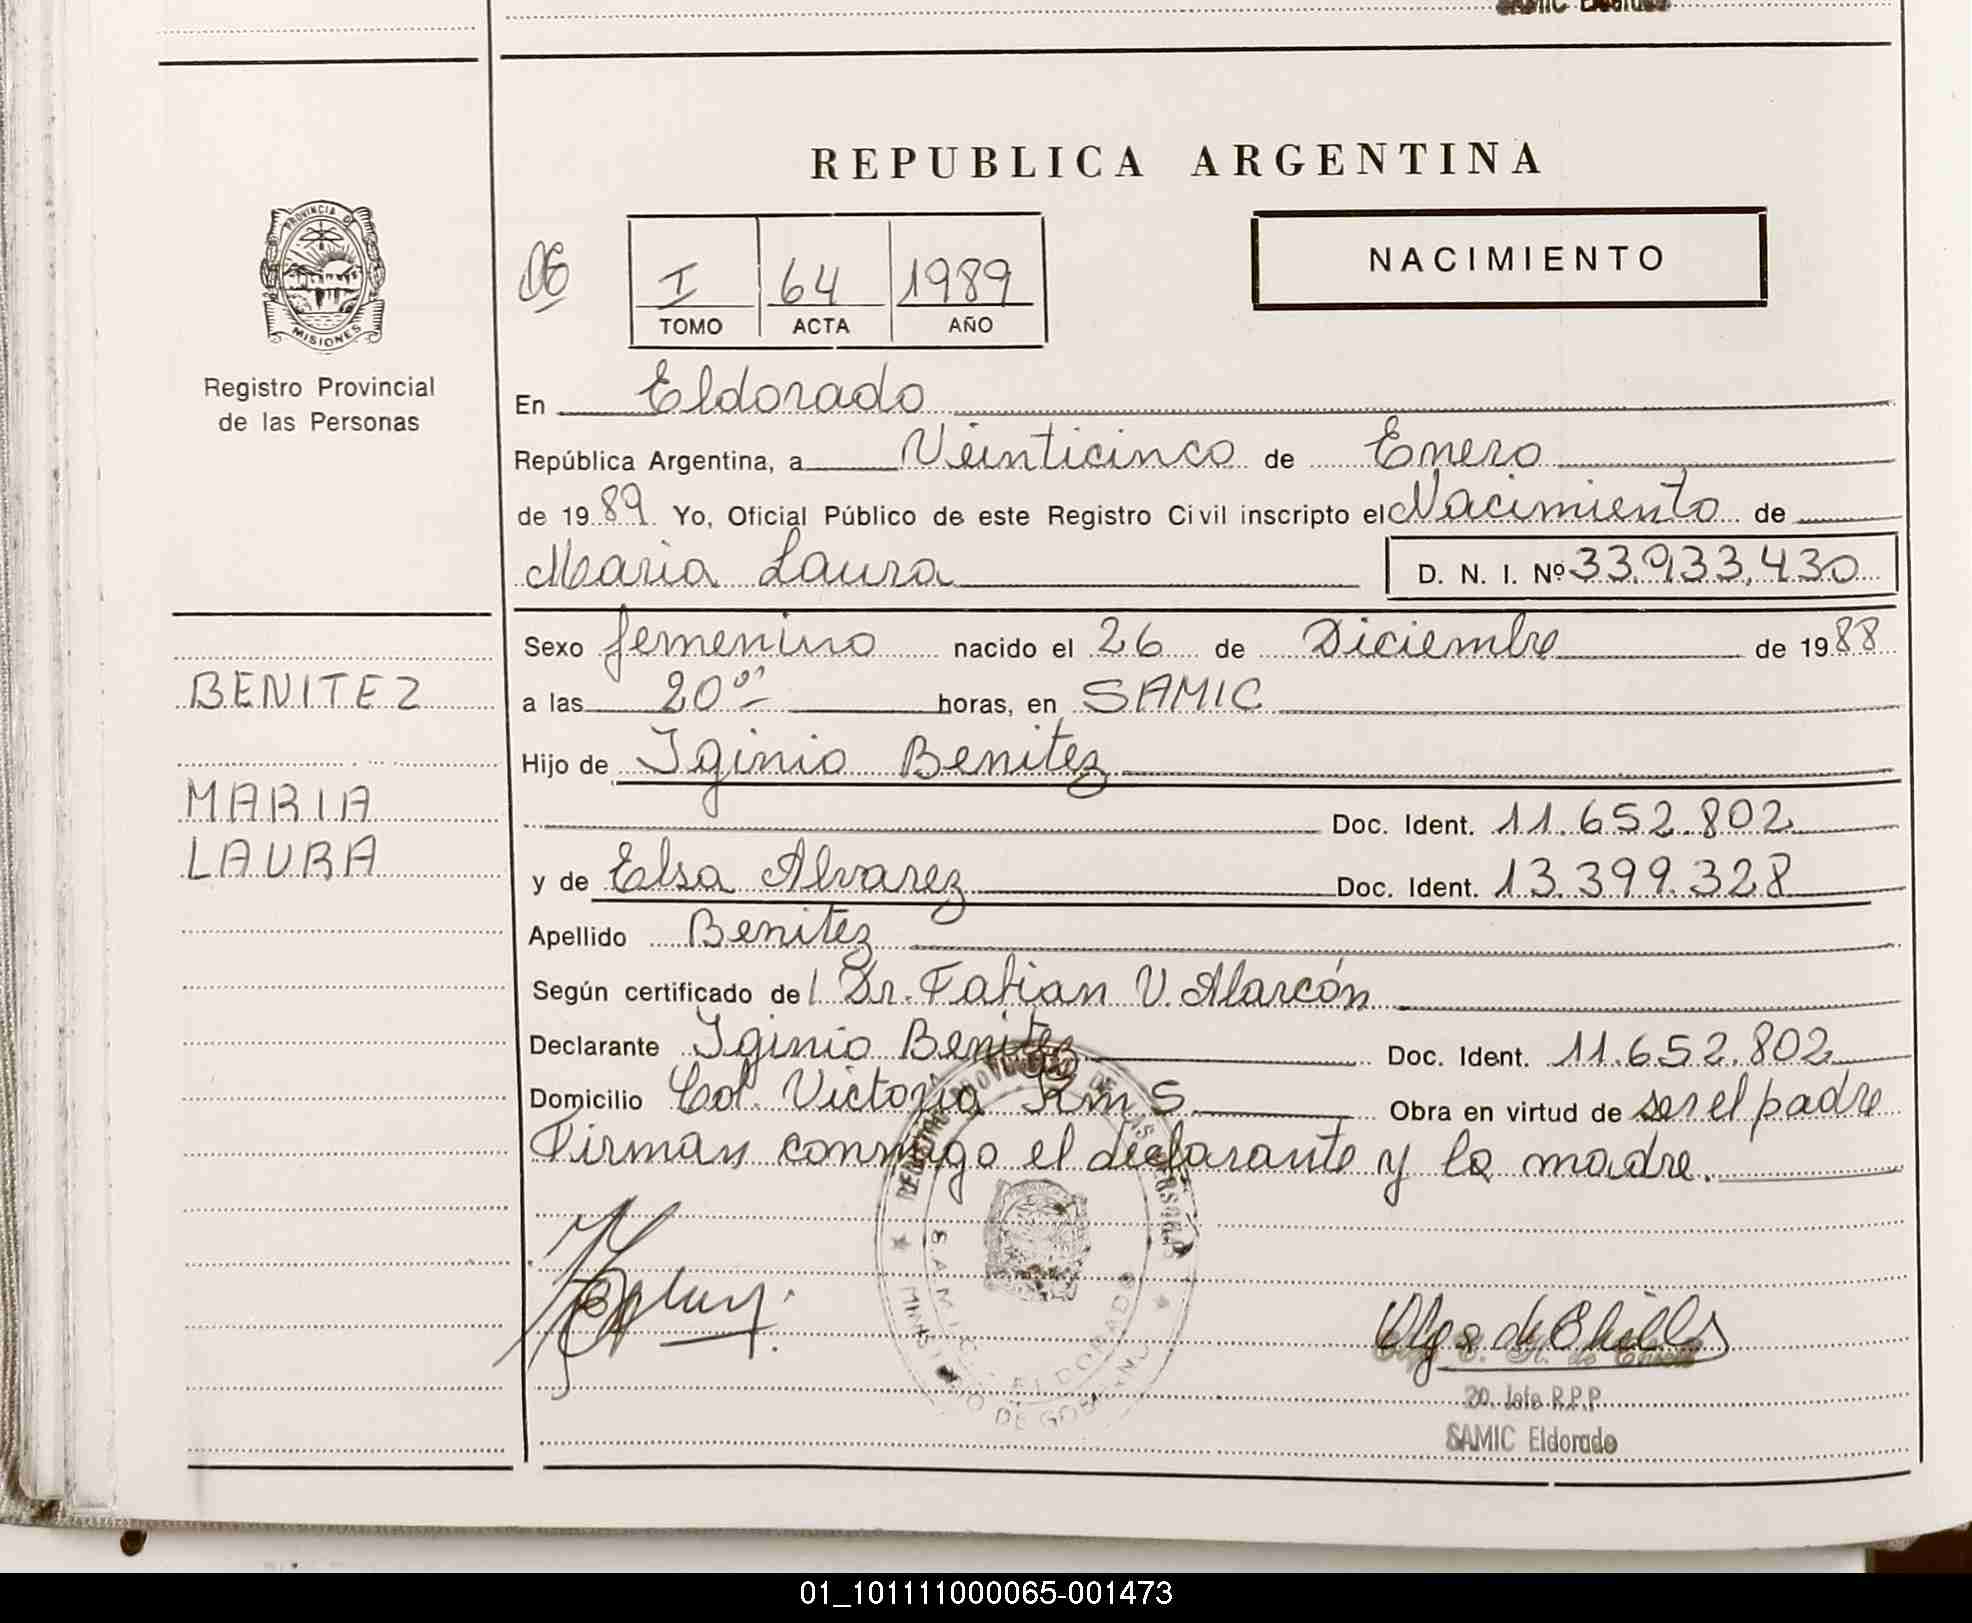 SAMIC Eldorado
REPUBLICA ARGENTINA
PROVINCIA DE
MISIONES
Registro Provincial
de las Personas
06
I 64 1989
TOMO ACTA AÑO
NACIMIENTO
En Eldorado
República Argentina, a Veinticinco de Enero
de 1989. Yo, Oficial Público de este Registro Civil inscripto el Nacimiento de
Maria Laura D. N. I. Nº 33.933.430
Sexo femenino nacido el 26 de Diciembre de 1988
a las 20 horas, en SAMIC
Hijo de Iginio Benitez
Doc. Ident. 11.652.802
y de Elsa Alvarez Doc. Ident. 13.399.328
Apellido Benitez
Según certificado del Dr. Fabian V. Alarcón
Declarante Iginio Benitez Doc. Ident. 11.652.802
Domicilio Col. Victoria Km 5 Obra en virtud de ser el padre
Firman conmigo el declarante y la madre.
BENITEZ
MARIA
LAURA
REGISTRO PROVINCIAL DE LAS PERSONAS
S.A.M.I.C. ELDORADO
MINISTERIO DE GOBIERNO
Olga de
2o. Jefe R.P.P.
SAMIC Eldorado
01_101111000065-001473